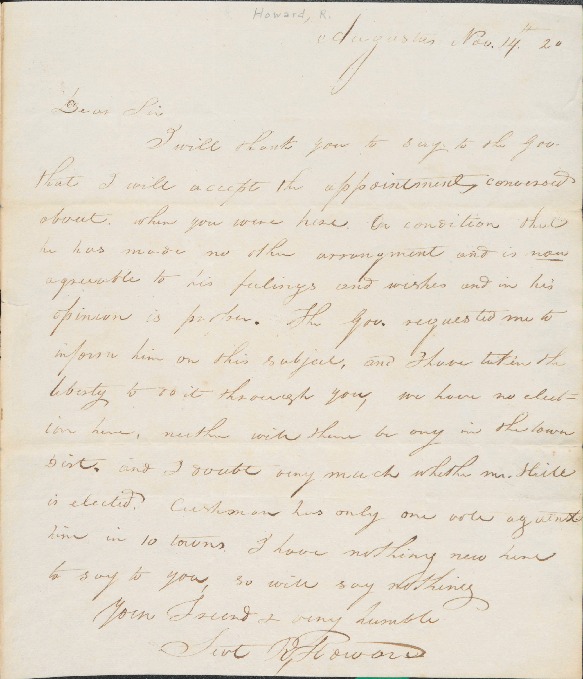 Howard, R.
Augusta Nov. 14th 20
Dear Sir
I will thank you to say to the Gov.
that I will accept the appointment, conversed
about. when you were here. On condition that
he has made no other arrangment and is now
agreeable to his feelings and wishes and in his
opinion is proper. The Gov. requested me to
inform him on this subject, and I have taken the
liberty to do it through you, we have no elect-
ion here, neither will there be any in the town
Dist. and I doubt very much whether mr. Hill
is elected. Cushman has only one vote against
him in 10 towns. I have nothing new here
to say to you, so will say nothing
Your Friend & very humble
Servt R Howard